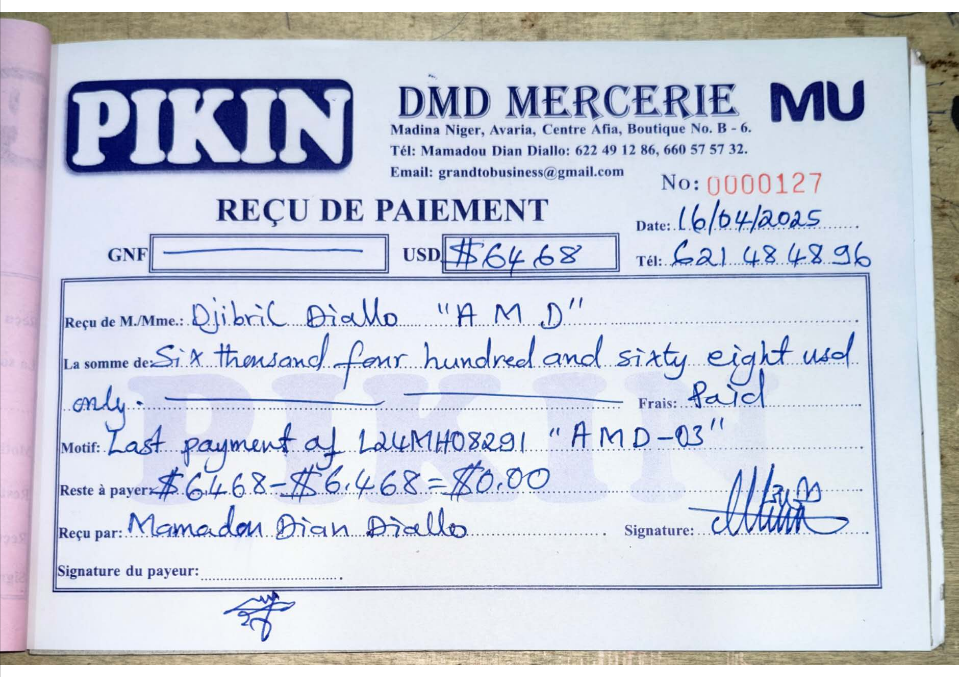 PIKIN
DMD MERCERIE MU
Madina Niger, Avaria, Centre Afia, Boutique No. B - 6.
Tél: Mamadou Dian Diallo: 622 49 12 86, 660 57 57 32.
Email: grandtobusiness@gmail.com
No: 0000127
REÇU DE PAIEMENT
Date: 16/04/2025
GNF USD $6468 Tél: 621 48 48 96
Reçu de M./Mme.: Djibril Diallo "A M D"
La somme de: Six thousand four hundred and sixty eight usd
only. Frais: Paid
Motif: Last payment of L24MH08291 "AMD-03"
Reste à payer: $6468-$6.468=$0.00
Reçu par: Mamadou Dian Diallo Signature:
Signature du payeur:
PIKIN